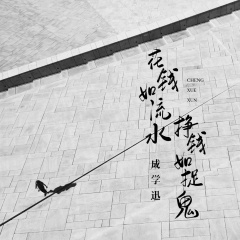 花钱如流水
挣钱如捉鬼
CHENG
XUE
XUN
成学迅